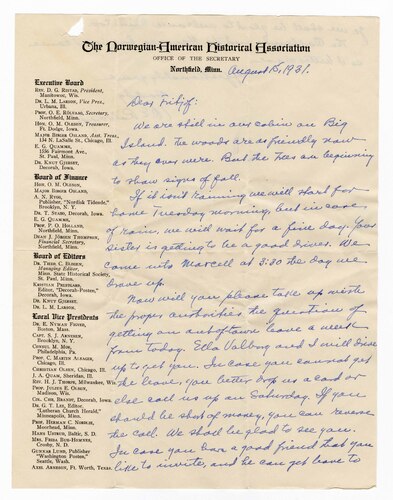 The Norwegian-American Historical Association
OFFICE OF THE SECRETARY
Northfield, Minn.
August 15, 1931.
Executive Board
REV. D. G. RISTAD, President,
Manitowoc, Wis.
DR. L. M. LARSON, Vice Pres.,
Urbana, Ill.
PROF. O. E. RÖLVAAG, Secretary,
Northfield, Minn.
HON. O. M. OLESON, Treasurer,
Ft. Dodge, Iowa.
MAJOR BIRGER OSLAND, Asst. Treas.,
134 N. LaSalle St., Chicago, Ill.
E. G. QUAMME,
1536 Fairmont Ave.,
St. Paul, Minn.
DR. KNUT GJERSET,
Decorah, Iowa.
Board of Finance
HON. O. M. OLESON,
MAJOR BIRGER OSLAND,
A. N. RYGG,
Publisher, "Nordisk Tidende,"
Brooklyn, N. Y.
DR. T. STABO, Decorah, Iowa.
E. G. QUAMME,
St. Paul, Minn.
PROF. P. O. HOLLAND,
Northfield, Minn.
DEAN J. JÖRGEN THOMPSON,
Financial Secretary,
Northfield, Minn.
Board of Editors
DR. THEO. C. BLEGEN,
Managing Editor,
Minn. State Historical Society,
St. Paul, Minn.
KRISTIAN PRESTGARD,
Editor, "Decorah-Posten,"
Decorah, Iowa.
DR. KNUT GJERSET,
DR. L. M. LARSON.
Local Vice Presidents
DR. E. NYMAN FIGVED,
Boston, Mass.
CAPT. S. J. ARNESEN,
Brooklyn, N. Y.
CONSUL M. MOE,
Philadelphia, Pa.
PROF. C. MARTIN ALSAGER,
Chicago, Ill.
CHRISTIAN OLSEN, Chicago, Ill.
J. A. QUAM, Sheridan, Ill.
REV. H. J. THORPE, Milwaukee, Wis.
PROF. JULIUS E. OLSON,
Madison, Wis.
COL. CHR. BRANDT, Decorah, Iowa.
DR. G. T. LEE, Editor,
"Lutheran Church Herald,"
Minneapolis, Minn.
PROF. HERMAN C. NORDLIE,
Moorhead, Minn.
HANS USTRUD, Baltic, S. D.
MRS. FREDA BUE-HOMNES,
Crosby, N. D.
GUNNAR LUND, Publisher
"Washington Posten,"
Seattle, Wash.
AXEL ARNESON, Ft. Worth, Texas.
Dear Fritjof:
We are still in our cabin on Big
Island. The woods are as friendly now
as they ever were. But the trees are beginning
to show signs of fall.
If it isn't raining we will start for
home Tuesday morning, but in case
of rain, we will wait for a fine day. Your
sister is getting to be a good driver. We
came into Marcell at 3:30 the day we
drove up.
Now will you please take up with
the proper authorities the question of
getting an out-of-town leave a week
from today. Ella Valborg and I will drive
up to get you. In case you cannot get
the leave, you better drop us a card or
else call us up on Saturday. If you
should be short of money, you can reverse
the call. We shall be glad to see you.
In case you have a good friend that you
like to invite, and he can get leave to